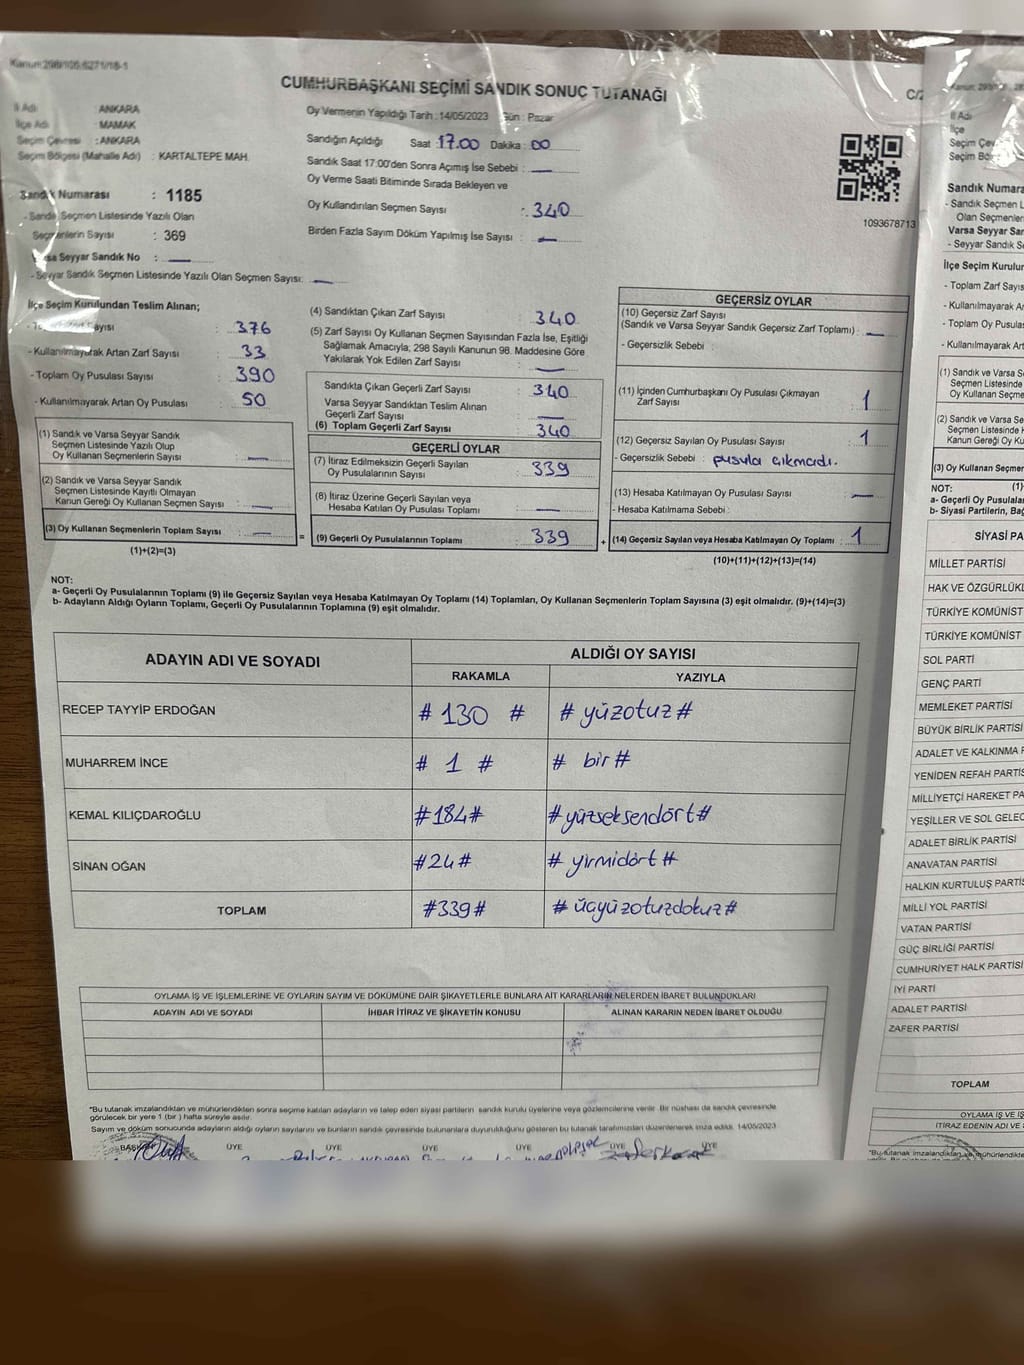 Kanun:298/106,6271/18-1
CUMHURBAŞKANI SEÇİMİ SANDIK SONUÇ TUTANAĞI
İl Adı : ANKARA
İlçe Adı : MAMAK
Seçim Çevresi : ANKARA
Seçim Bölgesi (Mahalle Adı) : KARTALTEPE MAH.
Sandık Numarası : 1185
- Sandık Seçmen Listesinde Yazılı Olan
Seçmenlerin Sayısı : 369
Varsa Seyyar Sandık No : —
- Seyyar Sandık Seçmen Listesinde Yazılı Olan Seçmen Sayısı: —
Oy Vermenin Yapıldığı Tarih : 14/05/2023 Gün : Pazar
Sandığın Açıldığı Saat : 17.00 Dakika : 00
Sandık Saat 17:00'den Sonra Açımış İse Sebebi : —
Oy Verme Saati Bitiminde Sırada Bekleyen ve
Oy Kullandırılan Seçmen Sayısı : 340
Birden Fazla Sayım Döküm Yapılmış İse Sayısı : —
1093678713
İlçe Seçim Kurulundan Teslim Alınan;
Sayısı : 376
- Kullanılmayarak Artan Zarf Sayısı : 33
- Toplam Oy Pusulası Sayısı : 390
- Kullanılmayarak Artan Oy Pusulası : 50
(1) Sandık ve Varsa Seyyar Sandık
Seçmen Listesinde Yazılı Olup
Oy Kullanan Seçmenlerin Sayısı : —
(2) Sandık ve Varsa Seyyar Sandık
Seçmen Listesinde Kayıtlı Olmayan
Kanun Gereği Oy Kullanan Seçmen Sayısı : —
(3) Oy Kullanan Seçmenlerin Toplam Sayısı : —
(1)+(2)=(3)
=
(4) Sandıktan Çıkan Zarf Sayısı : 340
(5) Zarf Sayısı Oy Kullanan Seçmen Sayısından Fazla İse, Eşitliği
Sağlamak Amacıyla; 298 Sayılı Kanunun 98. Maddesine Göre
Yakılarak Yok Edilen Zarf Sayısı : —
Sandıkta Çıkan Geçerli Zarf Sayısı : 340
Varsa Seyyar Sandıktan Teslim Alınan
Geçerli Zarf Sayısı : —
(6) Toplam Geçerli Zarf Sayısı : 340
GEÇERLİ OYLAR
(7) İtiraz Edilmeksizin Geçerli Sayılan
Oy Pusulalarının Sayısı : 339
(8) İtiraz Üzerine Geçerli Sayılan veya
Hesaba Katılan Oy Pusulası Toplamı : —
(9) Geçerli Oy Pusulalarının Toplamı : 339
+
GEÇERSİZ OYLAR
(10) Geçersiz Zarf Sayısı
(Sandık ve Varsa Seyyar Sandık Geçersiz Zarf Toplamı) : —
- Geçersizlik Sebebi :
(11) İçinden Cumhurbaşkanı Oy Pusulası Çıkmayan
Zarf Sayısı : 1
(12) Geçersiz Sayılan Oy Pusulası Sayısı : 1
- Geçersizlik Sebebi : pusula çıkmadı.
(13) Hesaba Katılmayan Oy Pusulası Sayısı : —
- Hesaba Katılmama Sebebi :
(14) Geçersiz Sayılan veya Hesaba Katılmayan Oy Toplamı : 1
(10)+(11)+(12)+(13)=(14)
NOT:
a- Geçerli Oy Pusulalarının Toplamı (9) ile Geçersiz Sayılan veya Hesaba Katılmayan Oy Toplamı (14) Toplamları, Oy Kullanan Seçmenlerin Toplam Sayısına (3) eşit olmalıdır. (9)+(14)=(3)
b- Adayların Aldığı Oyların Toplamı, Geçerli Oy Pusulalarının Toplamına (9) eşit olmalıdır.
ADAYIN ADI VE SOYADI ALDIĞI OY SAYISI
RAKAMLA YAZIYLA
RECEP TAYYİP ERDOĞAN # 130 # # yüzotuz #
MUHARREM İNCE # 1 # # bir #
KEMAL KILIÇDAROĞLU #184# #yüzseksendört#
SİNAN OĞAN #24# # yirmidört #
TOPLAM #339# # üçyüzotuzdokuz#
OYLAMA İŞ VE İŞLEMLERİNE VE OYLARIN SAYIM VE DÖKÜMÜNE DAİR ŞİKAYETLERLE BUNLARA AİT KARARLARIN NELERDEN İBARET BULUNDUKLARI
ADAYIN ADI VE SOYADI İHBAR İTİRAZ VE ŞİKAYETİN KONUSU ALINAN KARARIN NEDEN İBARET OLDUĞU
*Bu tutanak imzalandıktan ve mühürlendikten sonra seçime katılan adayların ve talep eden siyasi partilerin sandık kurulu üyelerine veya gözlemcilerine verilir. Bir nüshası da sandık çevresinde
görülecek bir yere 1 (bir ) hafta süreyle asılır.
Sayım ve döküm sonucunda adayların aldığı oyların sayılarını ve bunların sandık çevresinde bulunanlara duyurulduğunu gösteren bu tutanak tarafımızdan düzenlenerek imza edildi. 14/05/2023
BAŞKAN ÜYE ÜYE ÜYE ÜYE ÜYE ÜYE
C/2
İl Adı
İlçe
Seçim Çev
Seçim Böl
Sandık Numara
- Sandık Seçmen L
Olan Seçmenler
Varsa Seyyar San
- Seyyar Sandık S
İlçe Seçim Kurulur
- Toplam Zarf Sayıs
- Kullanılmayarak
- Toplam Oy Pusula
- Kullanılmayarak Ar
(1) Sandık ve Varsa S
Seçmen Listesinde
Oy Kullanan Seçme
(2) Sandık ve Varsa Se
Seçmen Listesinde
Kanun Gereği Oy K
(3) Oy Kullanan Seçmen
NOT: (1)
a- Geçerli Oy Pusulalar
b- Siyasi Partilerin, Bağ
SİYASİ PA
MİLLET PARTİSİ
HAK VE ÖZGÜRLÜKL
TÜRKİYE KOMÜNİST
TÜRKİYE KOMÜNİST
SOL PARTİ
GENÇ PARTİ
MEMLEKET PARTİSİ
BÜYÜK BİRLİK PARTİSİ
ADALET VE KALKINMA P
YENİDEN REFAH PARTİS
MİLLİYETÇİ HAREKET PA
YEŞİLLER VE SOL GELEC
ADALET BİRLİK PARTİSİ
ANAVATAN PARTİSİ
HALKIN KURTULUŞ PARTİS
MİLLİ YOL PARTİSİ
VATAN PARTİSİ
GÜÇ BİRLİĞİ PARTİSİ
CUMHURİYET HALK PARTİSİ
İYİ PARTİ
ADALET PARTİSİ
ZAFER PARTİSİ
TOPLAM
OYLAMA İŞ VE İŞ
İTİRAZ EDENİN ADI VE
*Bu tutanak imzalandıktan ve mühürlendikte